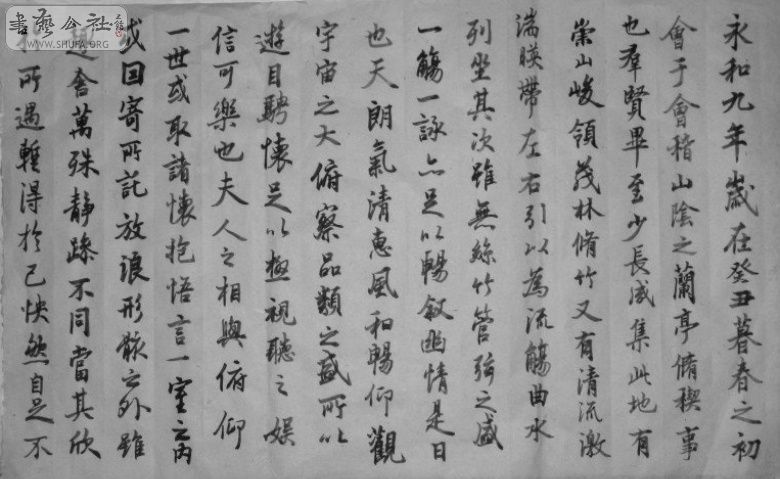 永和九年歲在癸丑暮春之初
會于會稽山陰之蘭亭脩稧事
也羣賢畢至少長咸集此地有
崇山峻領茂林脩竹又有清流激
湍暎帶左右引以為流觴曲水
列坐其次雖無絲竹管弦之盛
一觴一詠亦足以暢敘幽情是日
也天朗氣清惠風和暢仰觀
宇宙之大俯察品類之盛所以
遊目騁懷足以極視聽之娛
信可樂也夫人之相與俯仰
一世或取諸懷抱悟言一室之內
或因寄所託放浪形骸之外雖
趣舍萬殊靜躁不同當其欣
所遇暫得於己怏然自足不
書藝公社
WWW.SHUFA.ORG